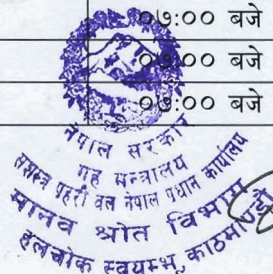 ०७:०० बजे
०७:०० बजे
०७:०० बजे
नेपाल सरकार
गृह मन्त्रालय
सशस्त्र प्रहरी बल नेपाल प्रधान कार्यालय
मानव श्रोत विभाग
हलचोक स्वयम्भू, काठमाण्डौ